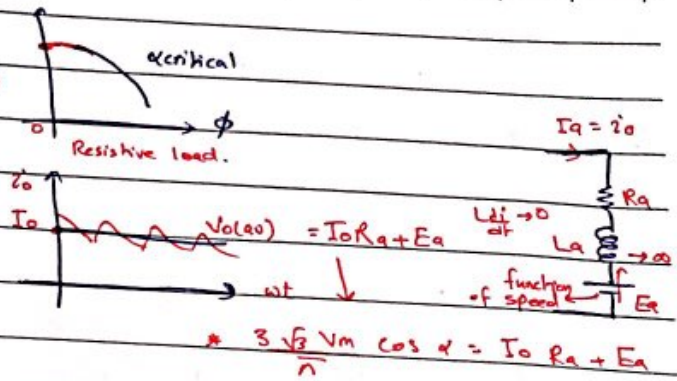 αcritical
0
ϕ
Resistive load.
Ia = io
Ra
io
Io
Vo(av) = IoRa + Ea
Ldi/dt → 0
La → ∞
ωt
function of speed
Ea
* 3√3 Vm/π cos α = Io Ra + Ea